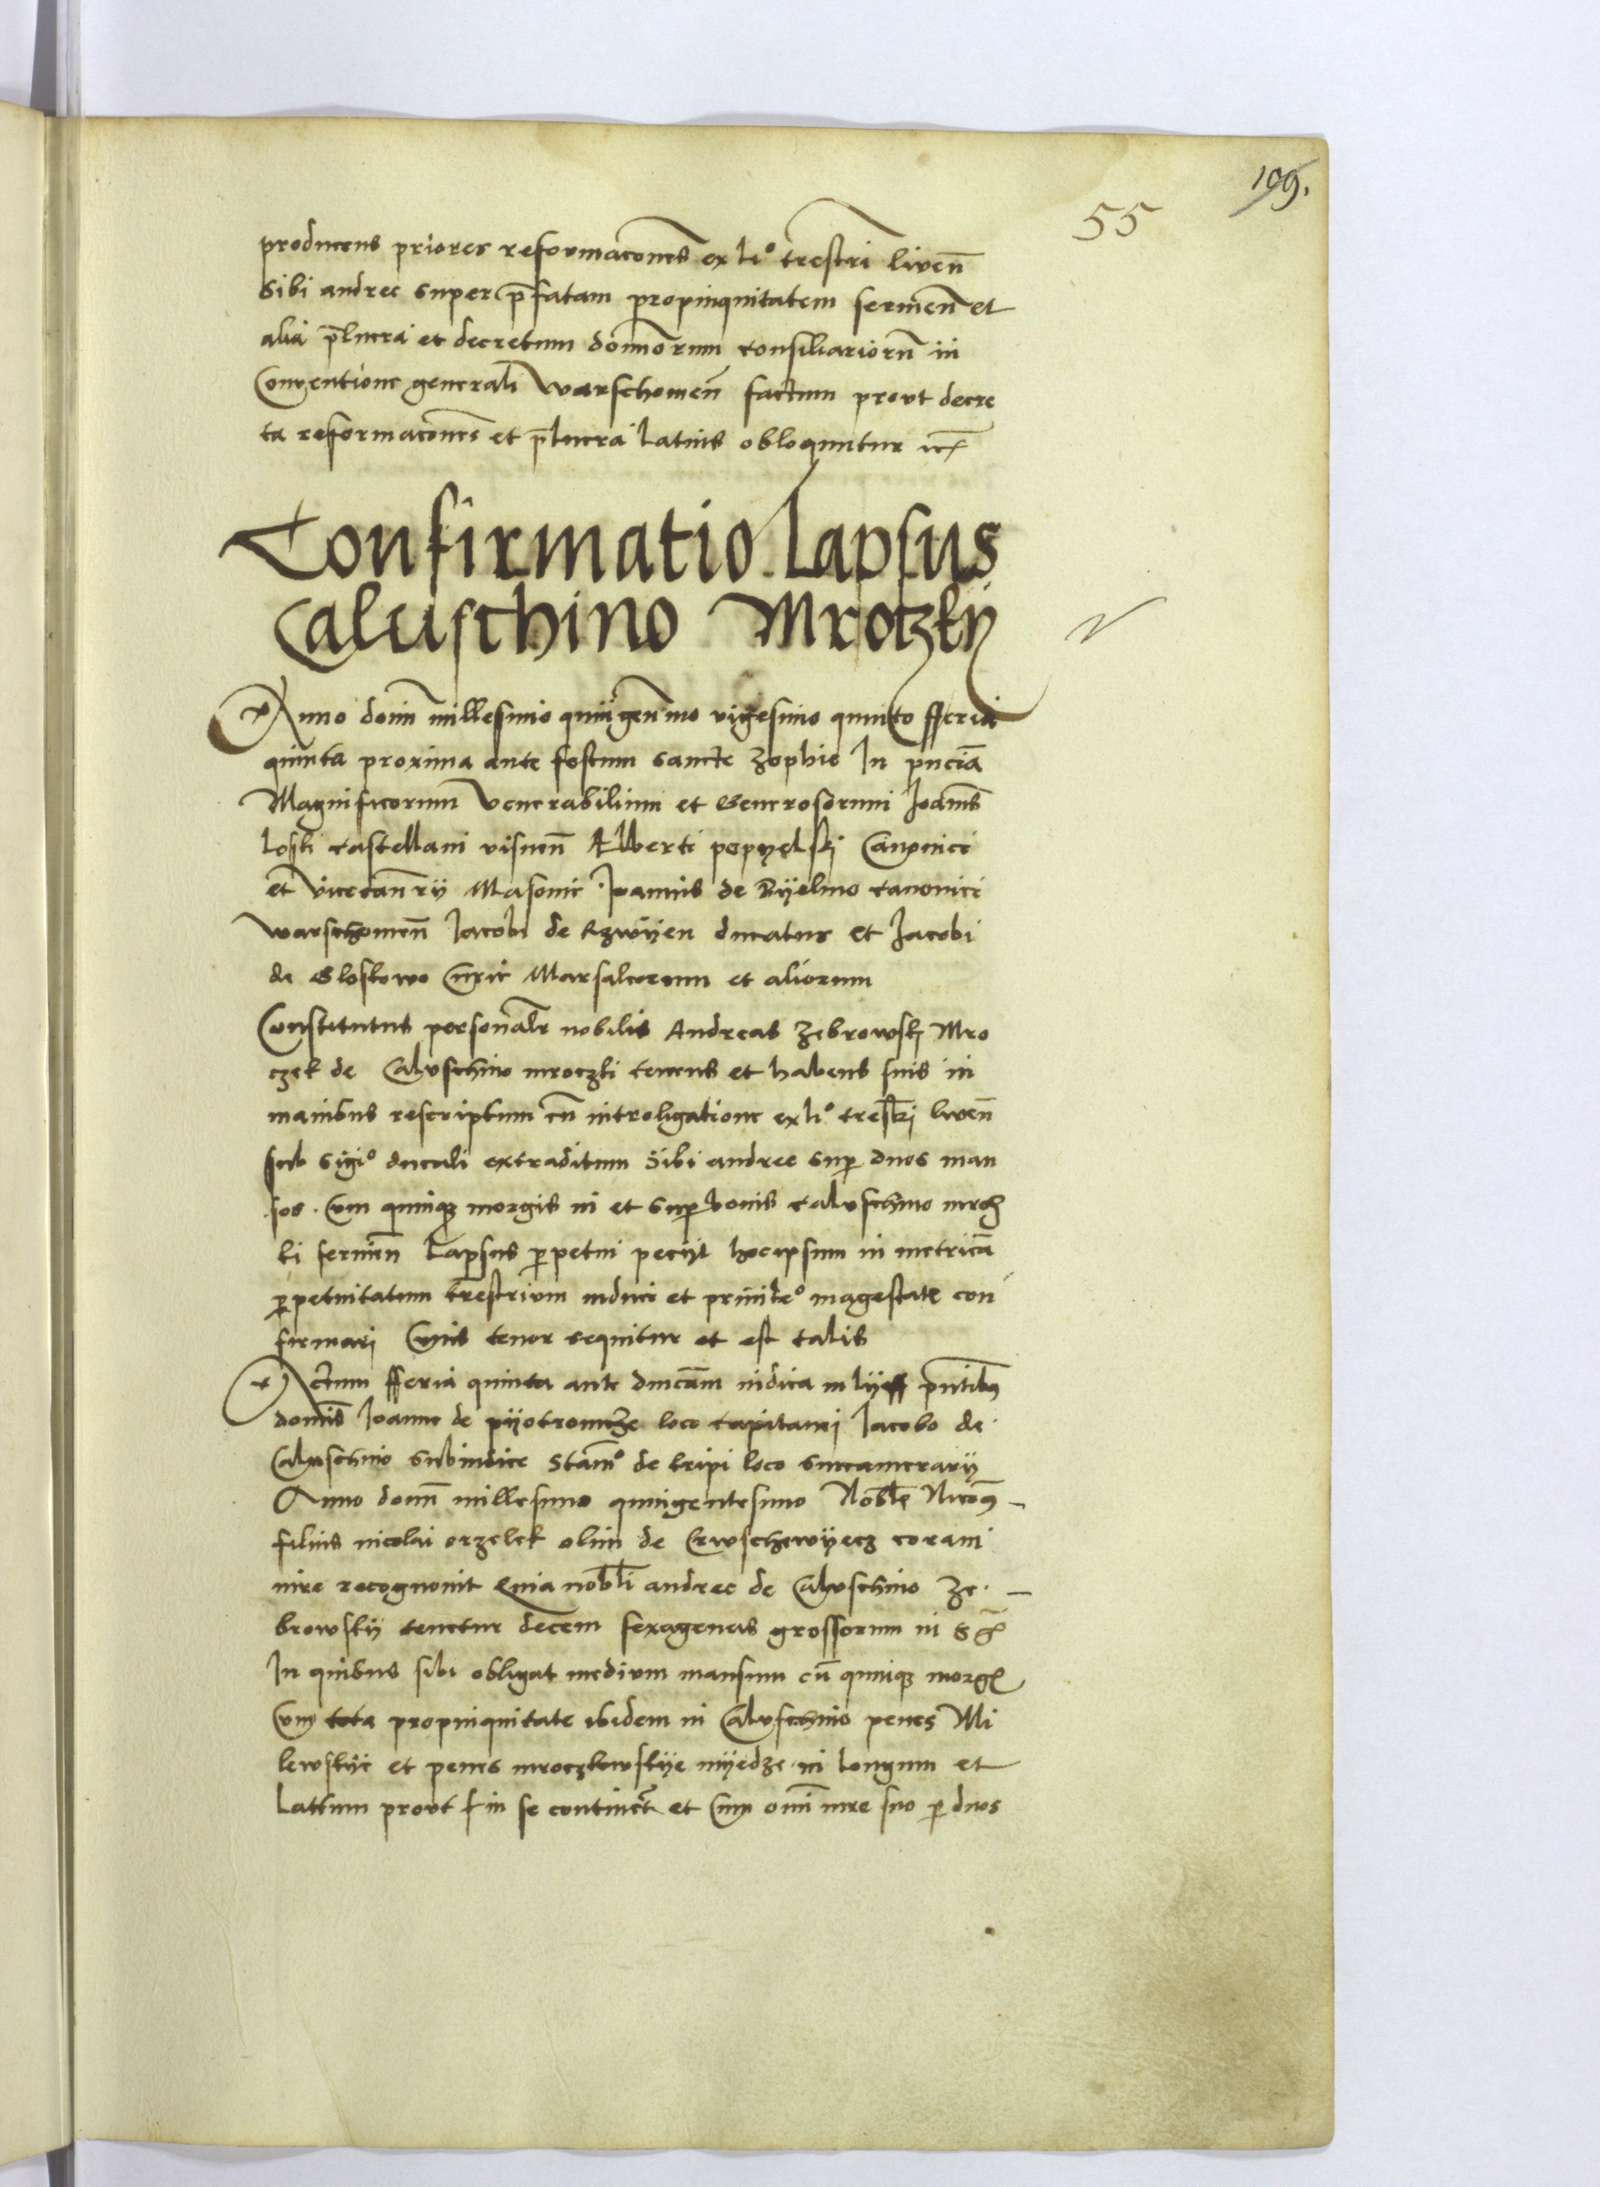 109.
55
producens priores reformacones ex li° trestri liven
Sibi andree super prefatam propinquitatem servien et
alia prelucra et decretum dominorum consiliariorum in
Conventione generali Warschowien factum prout decre
ta reformacones et prelucra latius obloquntur etc
Confirmatio lapsus
Caluschino Mrotzky
Anno domini millesimo quingenmo vigesimo quinto fferia
quinta proxima ante festum sancte Zophie In pnciam
Magnificorum Venerabilium et Generosorum Joannis
loski castellani visnen Alberti popyelski Canonici
et Vicecanrij Masovie Joannis de Byelino canonici
warschowien Jacobi de Rzwyen ducatus et Jacobi
de Gloskowo Curie Marsalcorum et aliorum
Constitutus personalr nobilis Andreas Zebrowsky Mro
czek de Caluschino mroczki tenens et habens suis in
manibus rescriptum cum introligatione ex li° trestri liven
sub sigi° ducali extraditum Sibi andree super duos man
sos Cum quinque morgis in et super bonis caluschino mrocz
ki servien Lapsus perpetui peciit hoc ipsum in metricam
perpetuitatum trestrium induci et magestate con
firmari Cuius tenor sequitur et est talis
Actum fferia quinta ante dnicam iudica in lyff pntibus
domis Joanne de pyotrowcze loco capitanei Jacobo de
Caluschino subiudice Stan° de kripi loco succamerarij
Anno domi millesimo quingentesimo Noble Nicos
filius nicolai orzelek olim de Crwschewyecz coram
iure recognovit Quia nobli andree de Caluschino Ze
browsky tenetur decem sexagenas grossorum in
In quibus sibi obligat medium mansum cu quinque morg
Cum tota propinquitate ibidem in Caluschino penes Mi
lewskye et penes mroczkowskye myedze in longum et
Lattum prout in se continet et Cum omi iure suo per duos